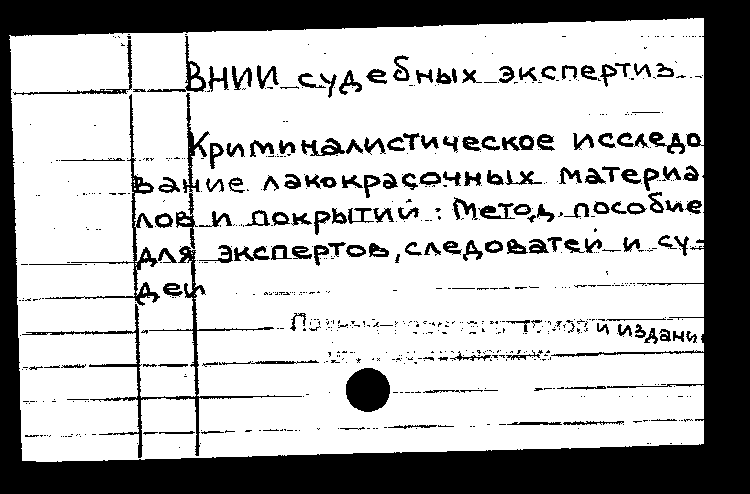 ВНИИ судебных экспертиз
Криминалистическое исследо
вание лакокрасочных материа
лов и покрытий: Метод. пособие
для экспертов, следоватей и су-
дей
и издани